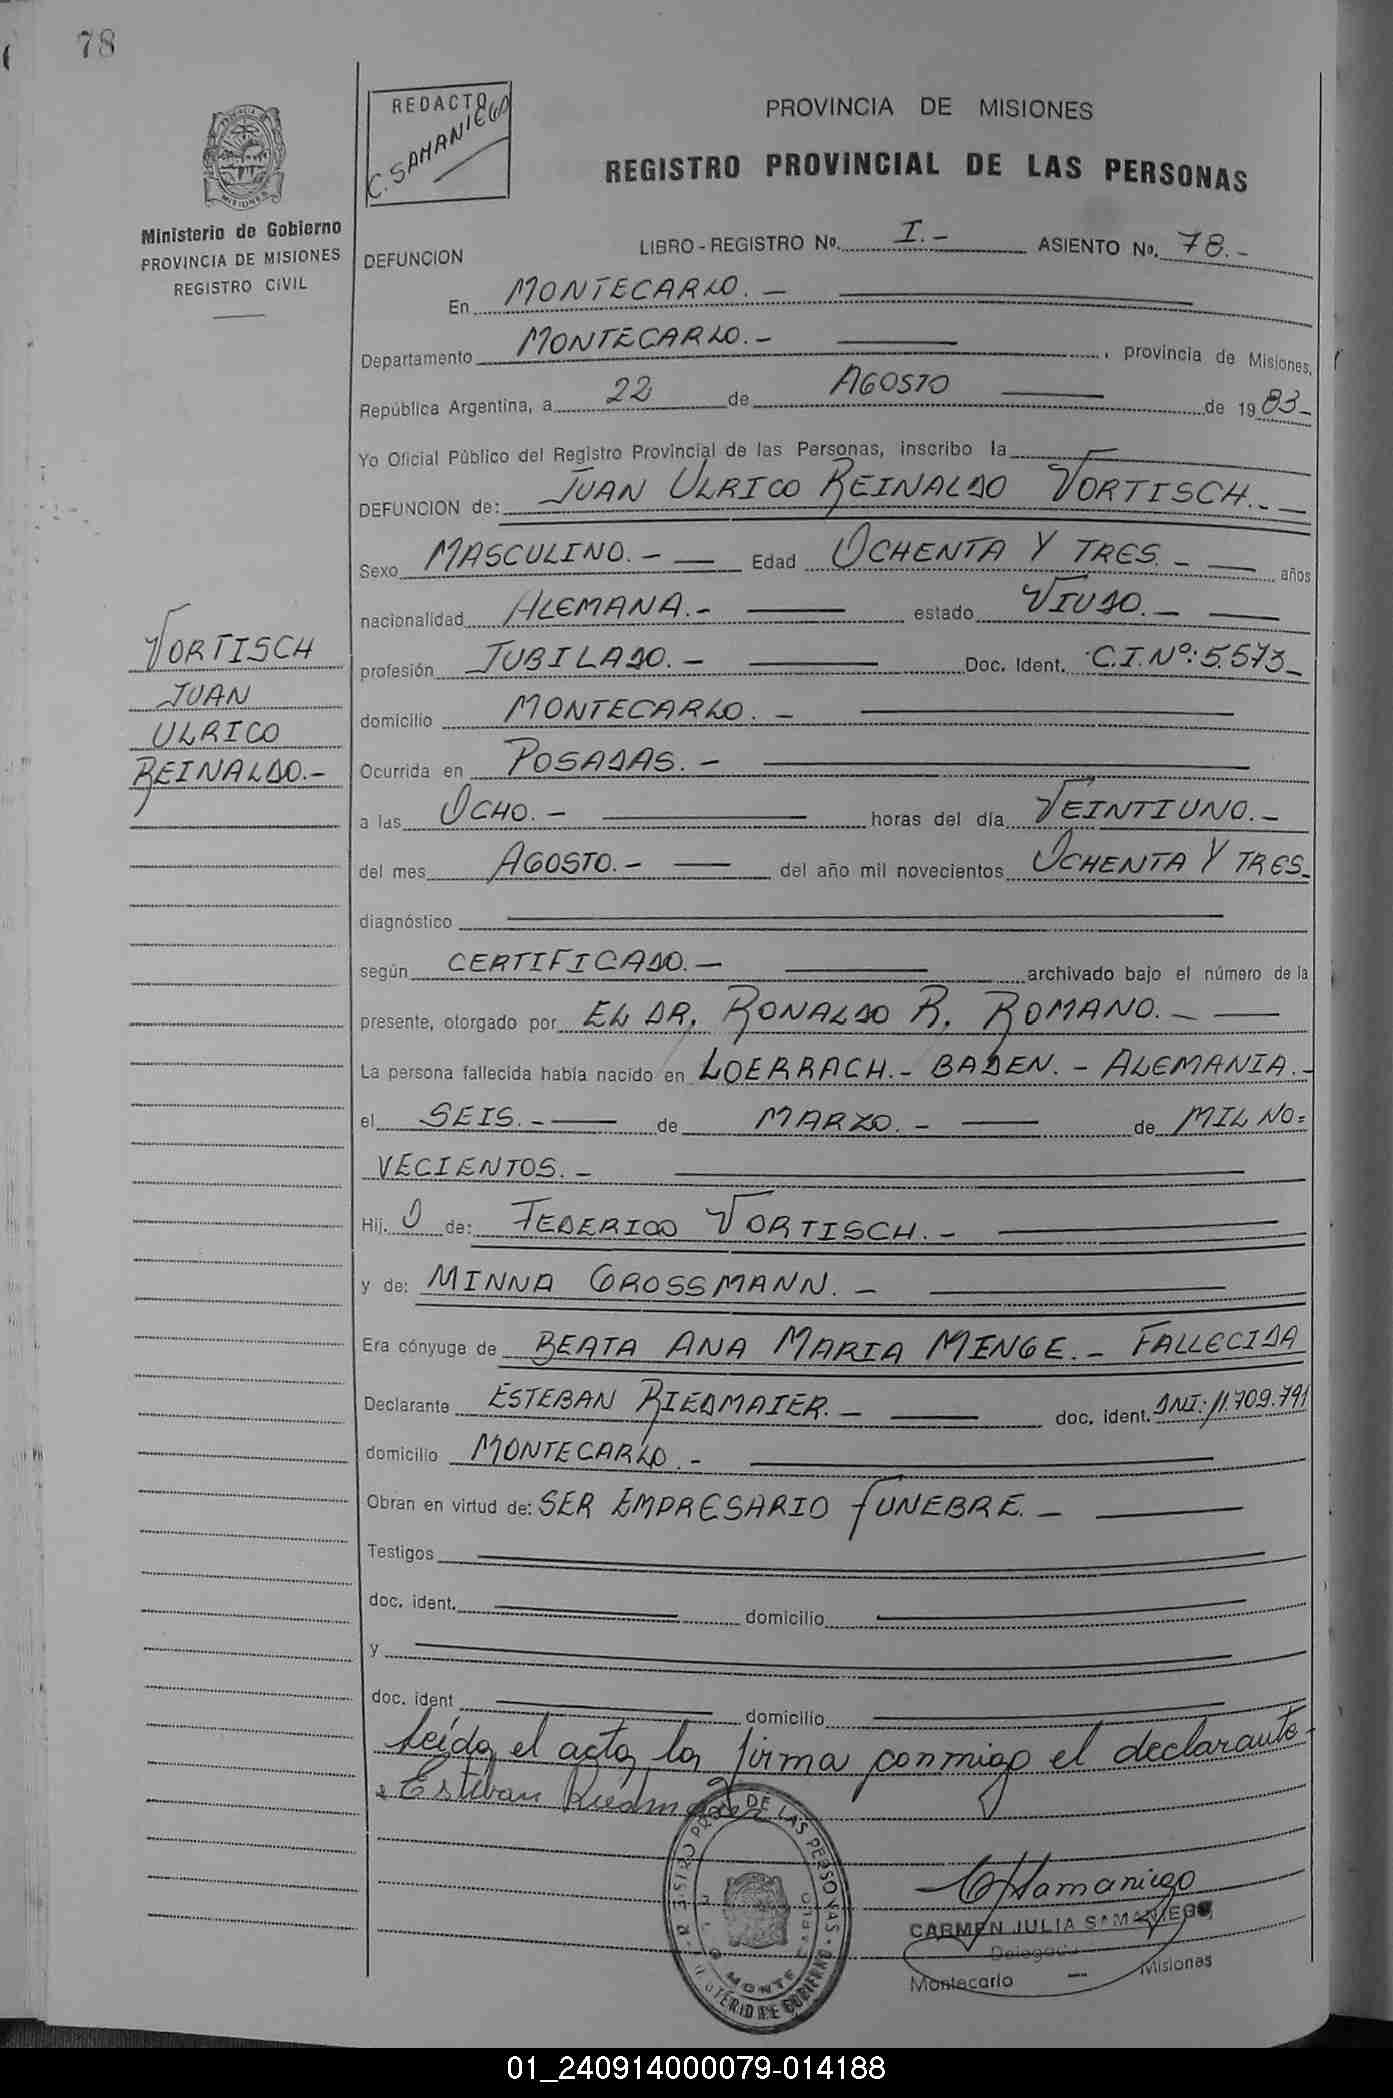 78
REDACTO
C. SAMANIEGO
PROVINCIA DE MISIONES
REGISTRO PROVINCIAL DE LAS PERSONAS
MISIONES
Ministerio de Gobierno
PROVINCIA DE MISIONES
REGISTRO CIVIL
LIBRO - REGISTRO No. I.- ASIENTO No. 78.-
DEFUNCION
En MONTECARLO.-
Departamento MONTECARLO.- , provincia de Misiones,
República Argentina, a 22 de AGOSTO de 1983-
Yo Oficial Público del Registro Provincial de las Personas, inscribo la
DEFUNCION de: JUAN ULRICO REINALDO VORTISCH.-
Sexo MASCULINO.- Edad OCHENTA Y TRES.- años
nacionalidad ALEMANA.- estado VIUDO.-
profesión JUBILADO.- Doc. Ident. C.I.Nº: 5.573-
domicilio MONTECARLO.-
Ocurrida en POSADAS.-
a las OCHO.- horas del día VEINTIUNO.-
del mes AGOSTO.- del año mil novecientos OCHENTA Y TRES-
diagnóstico
según CERTIFICADO.- archivado bajo el número de la
presente, otorgado por EL DR, RONALDO R, ROMANO.-
La persona fallecida había nacido en LOERRACH.- BADEN.- ALEMANIA.-
el SEIS.- de MARZO.- de MIL NO=
VECIENTOS.-
Hij. O de: FEDERICO VORTISCH.-
y de: MINNA GROSSMANN.-
Era cónyuge de BEATA ANA MARIA MENGE.- FALLECIDA
Declarante ESTEBAN RIEDMAIER.- doc. ident. DNI: 11.709.791
domicilio MONTECARLO.-
Obran en virtud de: SER EMPRESARIO FUNEBRE.-
Testigos
doc. ident. domicilio
y
doc. ident domicilio
Leída el acta, la firma conmigo el declarante-
Esteban Riedmaier
VORTISCH
JUAN
ULRICO
REINALDO.-
DE LAS PERSONAS
MONTE CARLO
MINISTERIO DE GOBIERNO
CSamaniego
CARMEN JULIA SAMANIEGO
Delegada
Montecarlo - Misiones
01_240914000079-014188